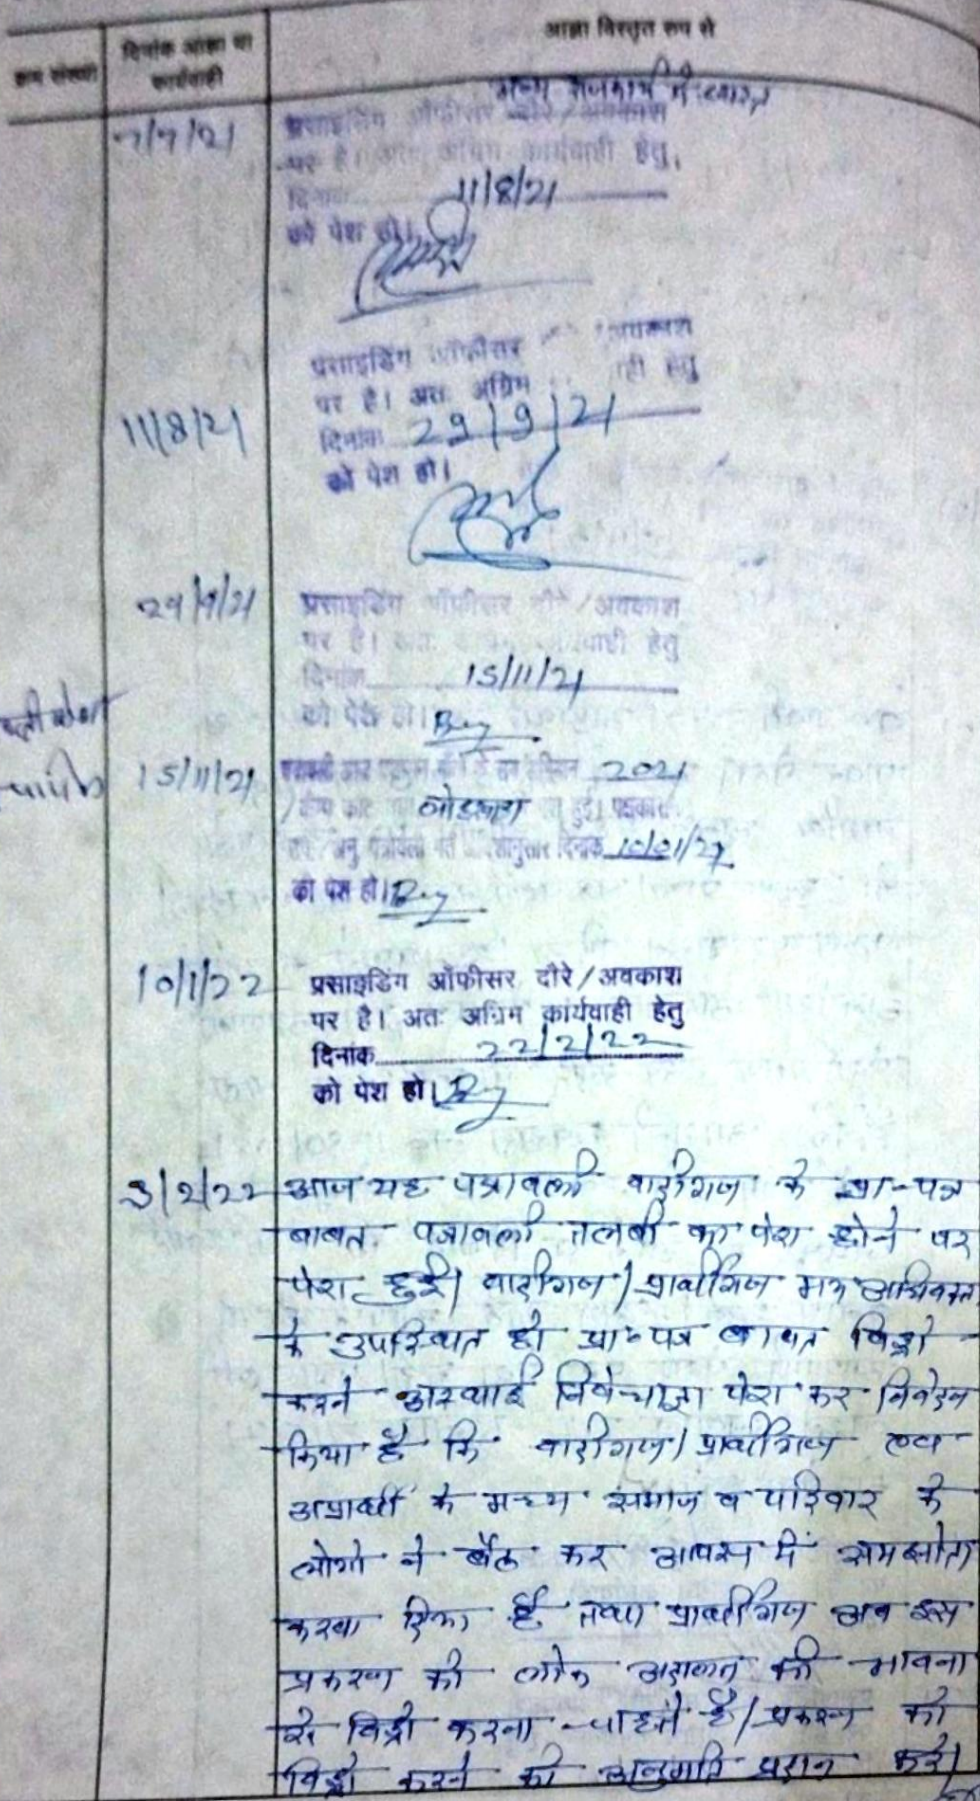 आज्ञा विस्तृत रूप से
क्रम संख्या
दिनांक आज्ञा या
कार्यवाही
अन्य राजकार्य में व्यस्त
7/7/21
प्रसाइडिंग ऑफीसर दौरे/अवकाश
पर है। अतः अग्रिम कार्यवाही हेतु,
दिनांक 11/8/21
को पेश हो।
11/8/21
प्रसाइडिंग ऑफीसर अवकाश
पर है। अतः अग्रिम ही हेतु
दिनांक 29/9/21
को पेश हो।
29/9/21
प्रसाइडिंग ऑफीसर दौरे/अवकाश
पर है। अतः वाही हेतु
दिनांक 15/11/21
को पेश हो।
15/11/21
2021
हुई।
दिनांक 10/01/22
को पेश हो।
10/1/22
प्रसाइडिंग ऑफीसर दौरे/अवकाश
पर है। अतः अग्रिम कार्यवाही हेतु
दिनांक 22/2/22
को पेश हो।
3/2/22
आज यह पत्रावली वादीगण के प्रा-पत्र
बाबत पत्रावली तलबी का पेश होने पर
पेश हुई। वादीगण/प्रार्थीगण मय अधिवक्ता
के उपस्थित हो प्रा-पत्र बाबत विड्रो
करने अस्थाई निषेधाज्ञा पेश कर निवेदन
किया है कि वादीगण/प्रार्थीगण एवं
अप्रार्थी के मध्य समाज व परिवार के
लोगो ने बैठ कर आपस में समझोता
करवा दिया है तथा प्रार्थीगण अब इस
प्रकरण को लोक अदालत की भावना
से विड्रो करना चाहते है/प्रकरण को
विड्रो करने की अनुमति प्रदान करे।